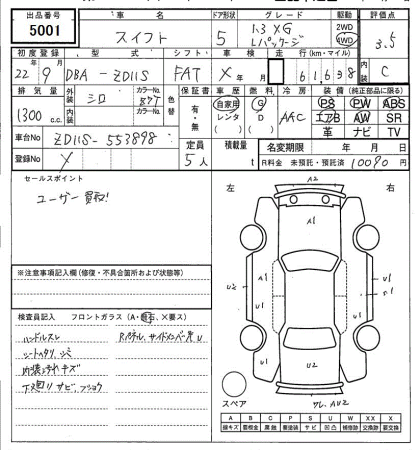 出品番号 車名 ドア形状 グレード 駆動 評価点
5001 スイフト 5 1.3 XG Lパッケージ 2WD 4WD 3.5
初度登録 型式 シフト 車検 走行(km・マイル) 内装
22 9 DBA-ZD11S FAT X 年 月 61,698 C
排気量 外装色 カラーNo. 色替 保証書 車歴 燃料 冷房 装備 (純正部品に限る)
1300 c.c. シロ 有・無 自家用 レンタ G D AAC PS PW ABS
内装色 カラーNo. エアB AW SR
車台No ZD11S-553898 定員 積載量 革 ナビ TV
登録No X 5人 t 名変期限 年 月 日
R料金 未預託・預託済 10090 円
セールスポイント
ユーザー買取!
左 右
A2
A1
A1
U2 U1 U1
U1
U2
※注意事項記入欄(修復・不具合箇所および状態等)
検査員記入 フロントガラス(A・飛石・X要ス)
ハンドルスレ Rパネル、サイドメンバー先U
シートヘタリ、シミ
内装よごれキズ
下廻りサビ・フショク
スペア
A B C P S U W X XX
線キズ 要板金 腐蝕 要塗装 サビ 凹凸 補修跡 要交換